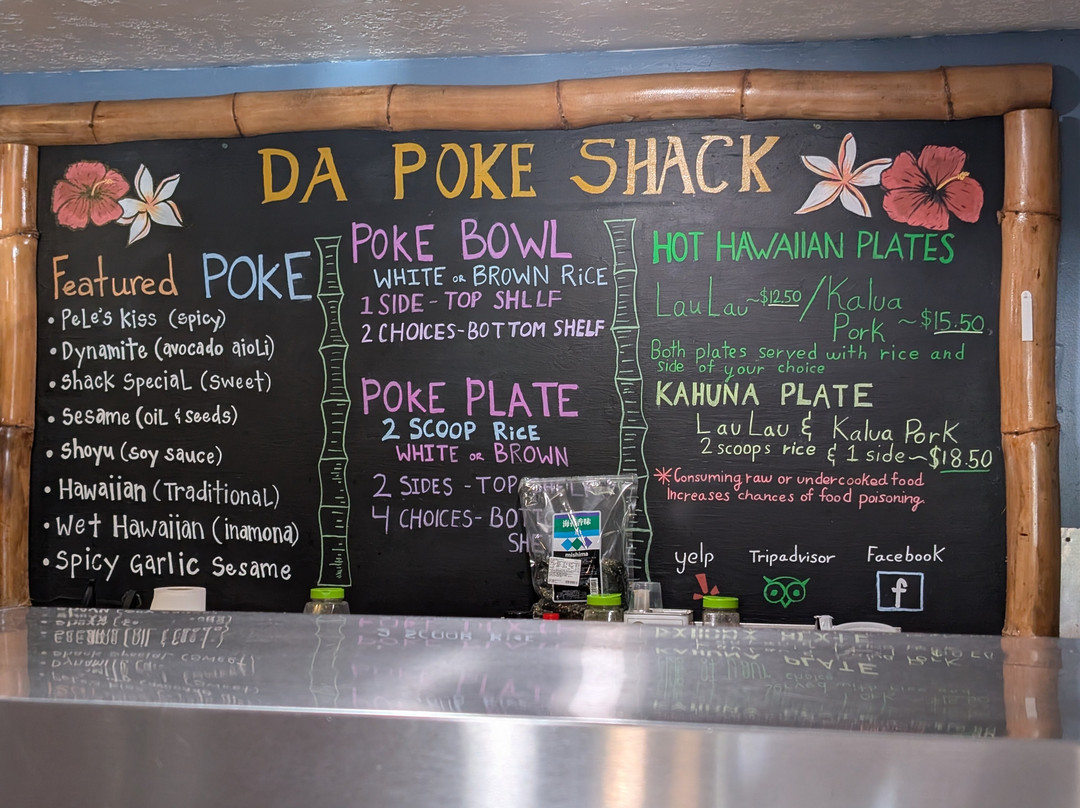 DA POKE SHACK
Featured POKE
• PeLe's Kiss (spicy)
• Dynamite (avocado aioLi)
• Shack SpeciaL (Sweet)
• Sesame (oiL & seeds)
• Shoyu (soy sauce)
• Hawaiian (TraditionaL)
• Wet Hawaiian (inamona)
• Spicy Garlic Sesame
POKE BOWL
WHITE OR BROWN RiCE
1 SIDE - TOP SHLLF
2 CHOICES-BOTTOM SHELF
POKE PLATE
2 SCOOP RiCE
WHITE OR BROWN
2 SIDES - TOP
4 CHOICES- BOT
SH
HOT HAWAIIAN PLATES
LauLau ~ $12.50 / Kalua
Pork ~ $15.50
Both plates served with rice and
side of your choice
KAHUNA PLATE
LauLau & Kalua Pork
2 scoops rice & 1 side ~ $18.50
* Consuming raw or undercooked food
Increases chances of food poisoning.
yelp Tripadvisor Facebook
f
mishima